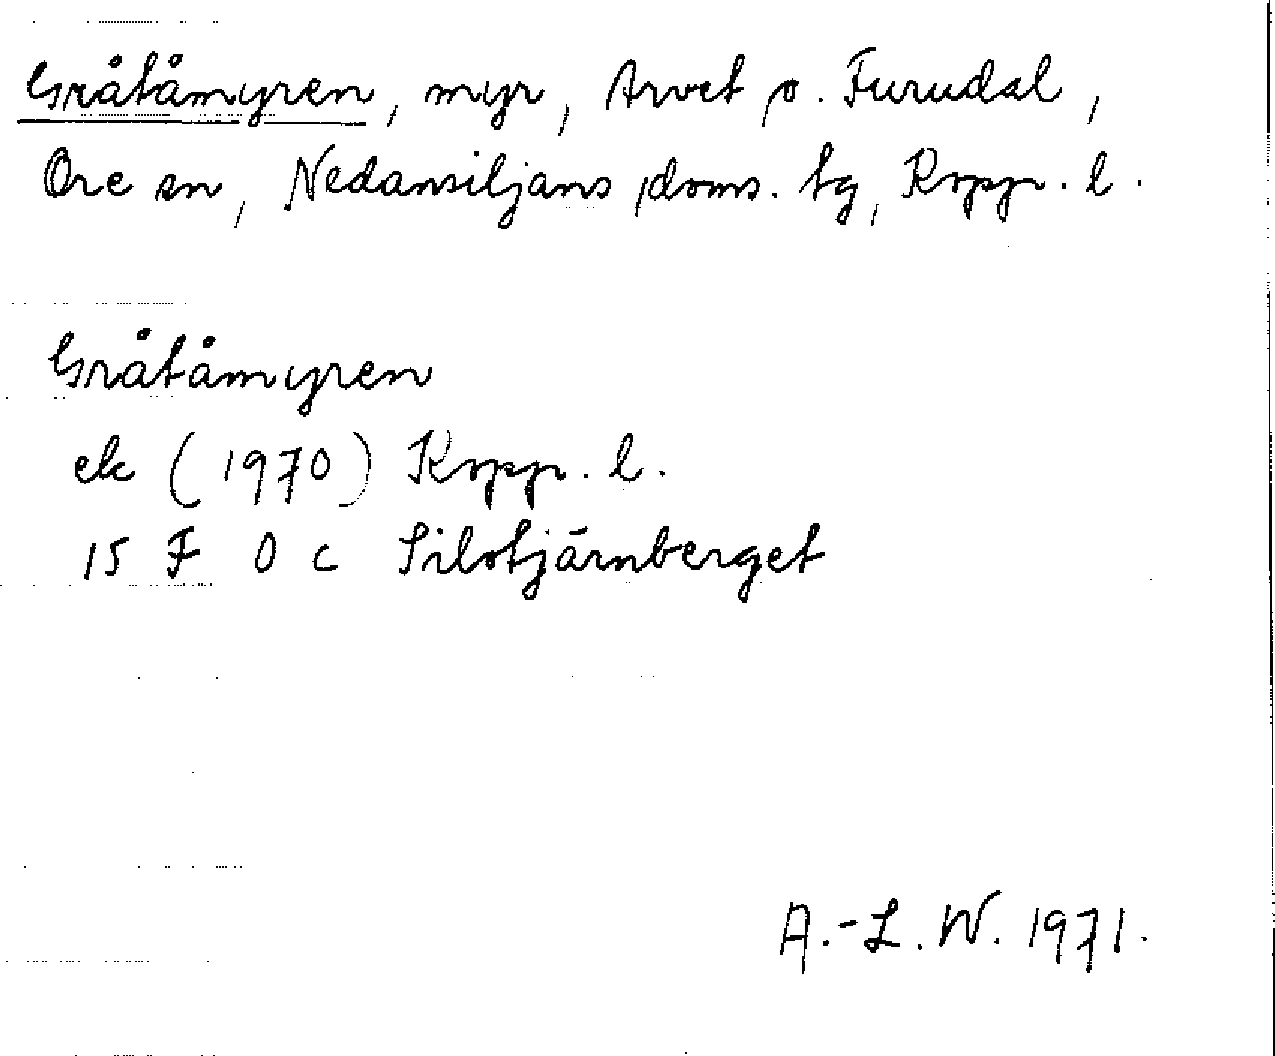 Gråtåmyren, myr, Arvet o. Furudal,
Ore sn, Nedansiljans doms. tg, Kopp. l.
Gråtåmyren
ek (1970) Kopp. l.
15 F 0 c Silotjärnberget
A.-L. W. 1971.